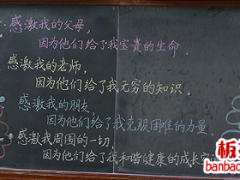 感激我的父母，
因为他们给了我宝贵的生命。
感激我的老师，
因为他们给了我无穷的知识。
感激我的朋友
因为他们给了我克服困难的力量
感激我周围的一切
因为他们给了我和谐健康的成长
板
banbao